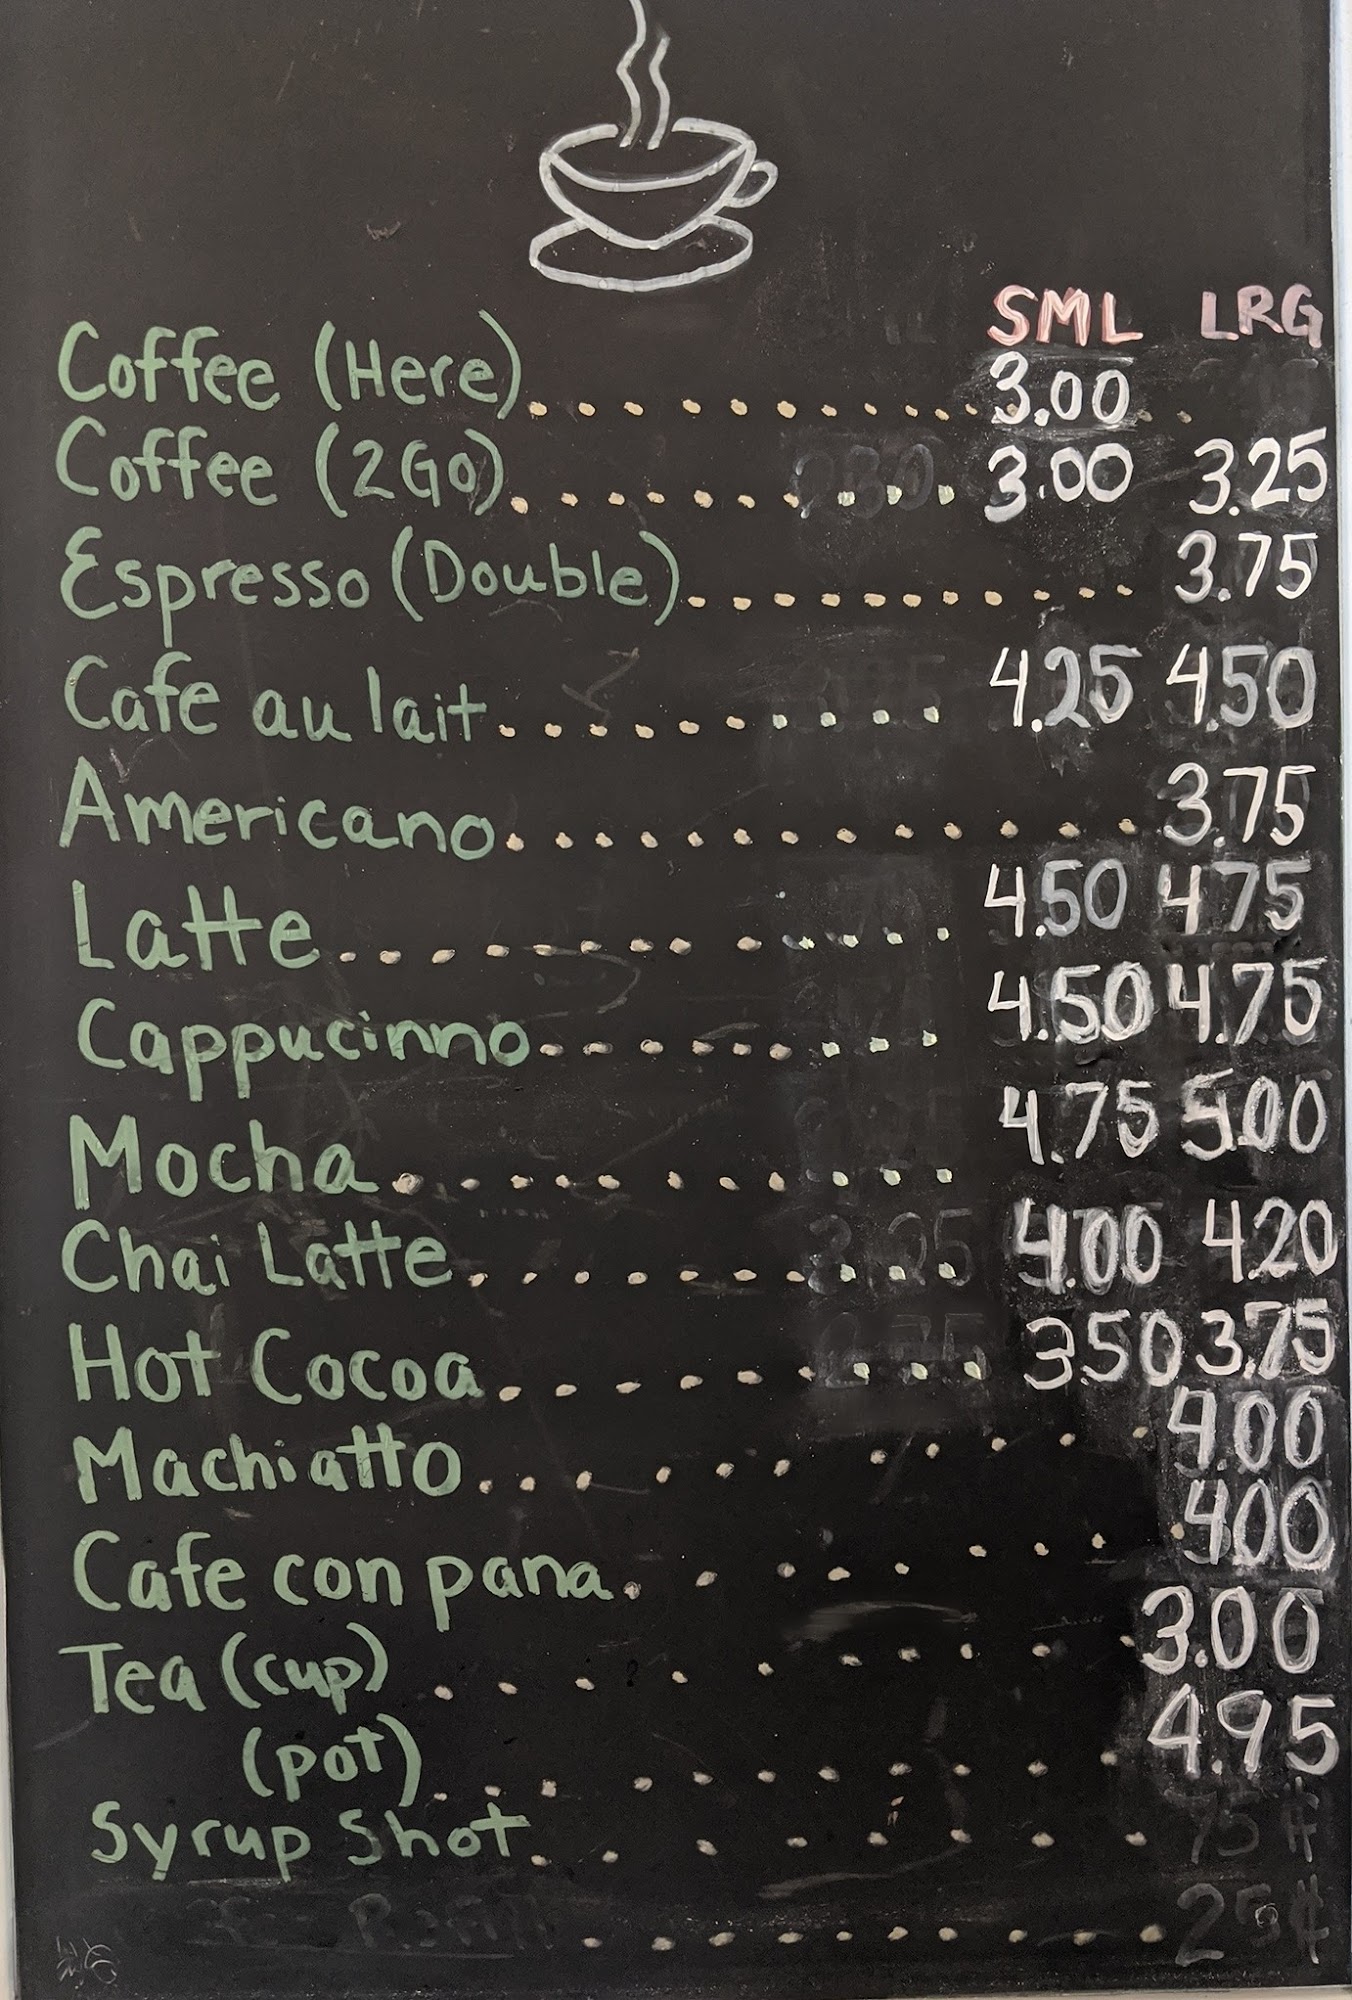 SML LRG
Coffee (Here) 3.00
Coffee (2GO) 3.00 3.25
Espresso (Double) 3.75
Cafe au lait 4.25 4.50
Americano 3.75
Latte 4.50 4.75
Cappucinno 4.50 4.75
Mocha 4.75 5.00
Chai Latte 4.00 4.20
Hot Cocoa 3.50 3.75
Machiatto 4.00
Cafe con pana 4.00
Tea (cup) 3.00
(pot) 4.95
Syrup Shot 75¢
Refill 25¢